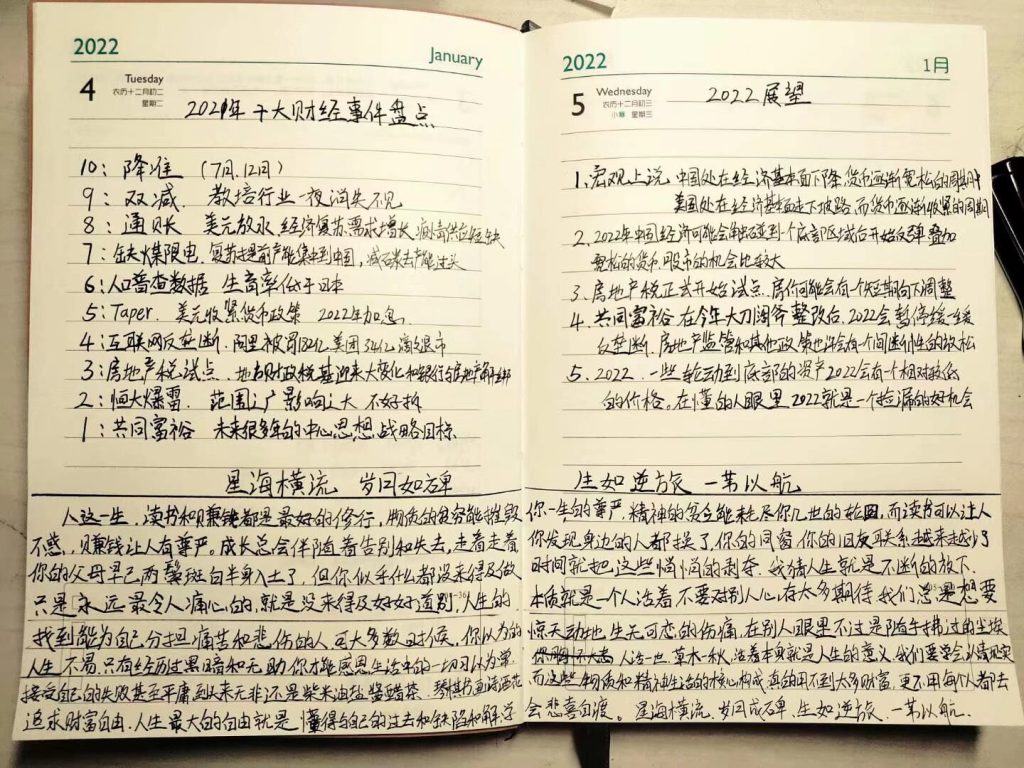 2022
January
4
Tuesday
农历十二月初二
星期二
2021年十大财经事件盘点
10：降准 （7月.12月）
9：双减. 教培行业一夜消失不见
8：通胀 美元放水 经济复苏 需求增长 疫情供应短缺
7：缺煤限电. 复苏提前产能集中到中国，减碳去产能过头
6：人口普查数据 生育率低于日本
5：Taper. 美元收紧货币政策 2022年加息.
4：互联网反垄断. 阿里被罚182亿 美团34亿 滴滴退市
3：房地产税试点. 地方财政税基迎来大变化和银行与房地产
2：恒大爆雷. 范围之广 影响之大 不好拆
1：共同富裕 未来很多年的中心思想.战略目标.
星海横流 岁月如碑
2022
1月
5
Wednesday
农历十二月初三
小寒 星期三
2022展望
1、宏观上说 中国处在经济基本面下降，货币逐渐宽松的周期中
美国处在经济基本面走下坡路，而货币逐渐收紧的周期
2、2022年中国经济可能会触碰到一个底部区域台开始反弹叠加
宽松的货币.股市的机会比较大
3、房地产税正式开始试点.房价可能会有一个短期向下调整
4、共同富裕 在今年大刀阔斧整改后.2022会暂停缓一缓
反垄断.房地产监管和其他政策也许会有一个间断性的放松
5、2022.一些轮动到底部的资产2022会有一个相对较低
的价格。在懂的人眼里2022就是一个捡漏的好机会
生如逆旅 一苇以航
人这一生，读书和赚钱都是最好的修行，物质的贫穷能摧毁你一生的尊严，精神的贫乏能耗尽你几世的轮回，而读书可以让人
不惑，赚钱让人有尊严。成长总会伴随着告别和失去，走着走着你发现身边的人都换了，你的同窗 你的旧友联系越来越少了
你的父母早已两鬓斑白半身入土了，但你似乎什么都没来得及做时间就把这些悄悄的剥夺。我猜人生就是不断的放下.
只是永远最令人痛心的，就是没来得及好好道别，人生的本质就是一个人活着 不要对别人心存太多期待 我们总是想要
找到能为自己分担痛苦和悲伤的人，可大多数时候，你以为的惊天动地 生无可恋的伤痛，在别人眼里不过是随手拂过的尘埃
人生不易.只有经历过黑暗和无助 你才能感恩生活中的一切习以为常，人活一世，草木一秋，活着本身就是人生的意义 我们要学会认清现实
接受自己的失败甚至平庸 到头来无非还是柴米油盐酱醋茶.琴棋书画诗酒花 而这些物质和精神生活的核心构成 真的用不到太多财富，更不用每个人都去
追求财富自由.人生最大的自由就是懂得与自己的过去和缺陷和解 学会悲喜自渡。星海横流、岁月成碑、生如逆旅、一苇以航.